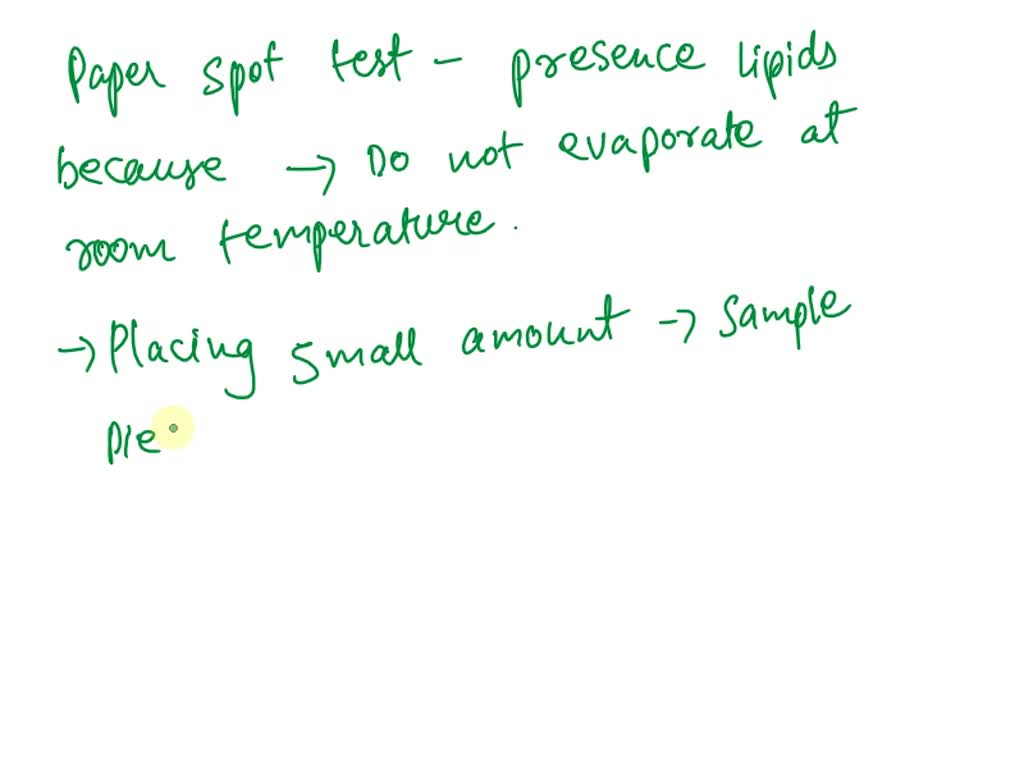 Paper spot test - presence lipids
because → Do not evaporate at
room temperature.
→ Placing small amount → Sample
pie